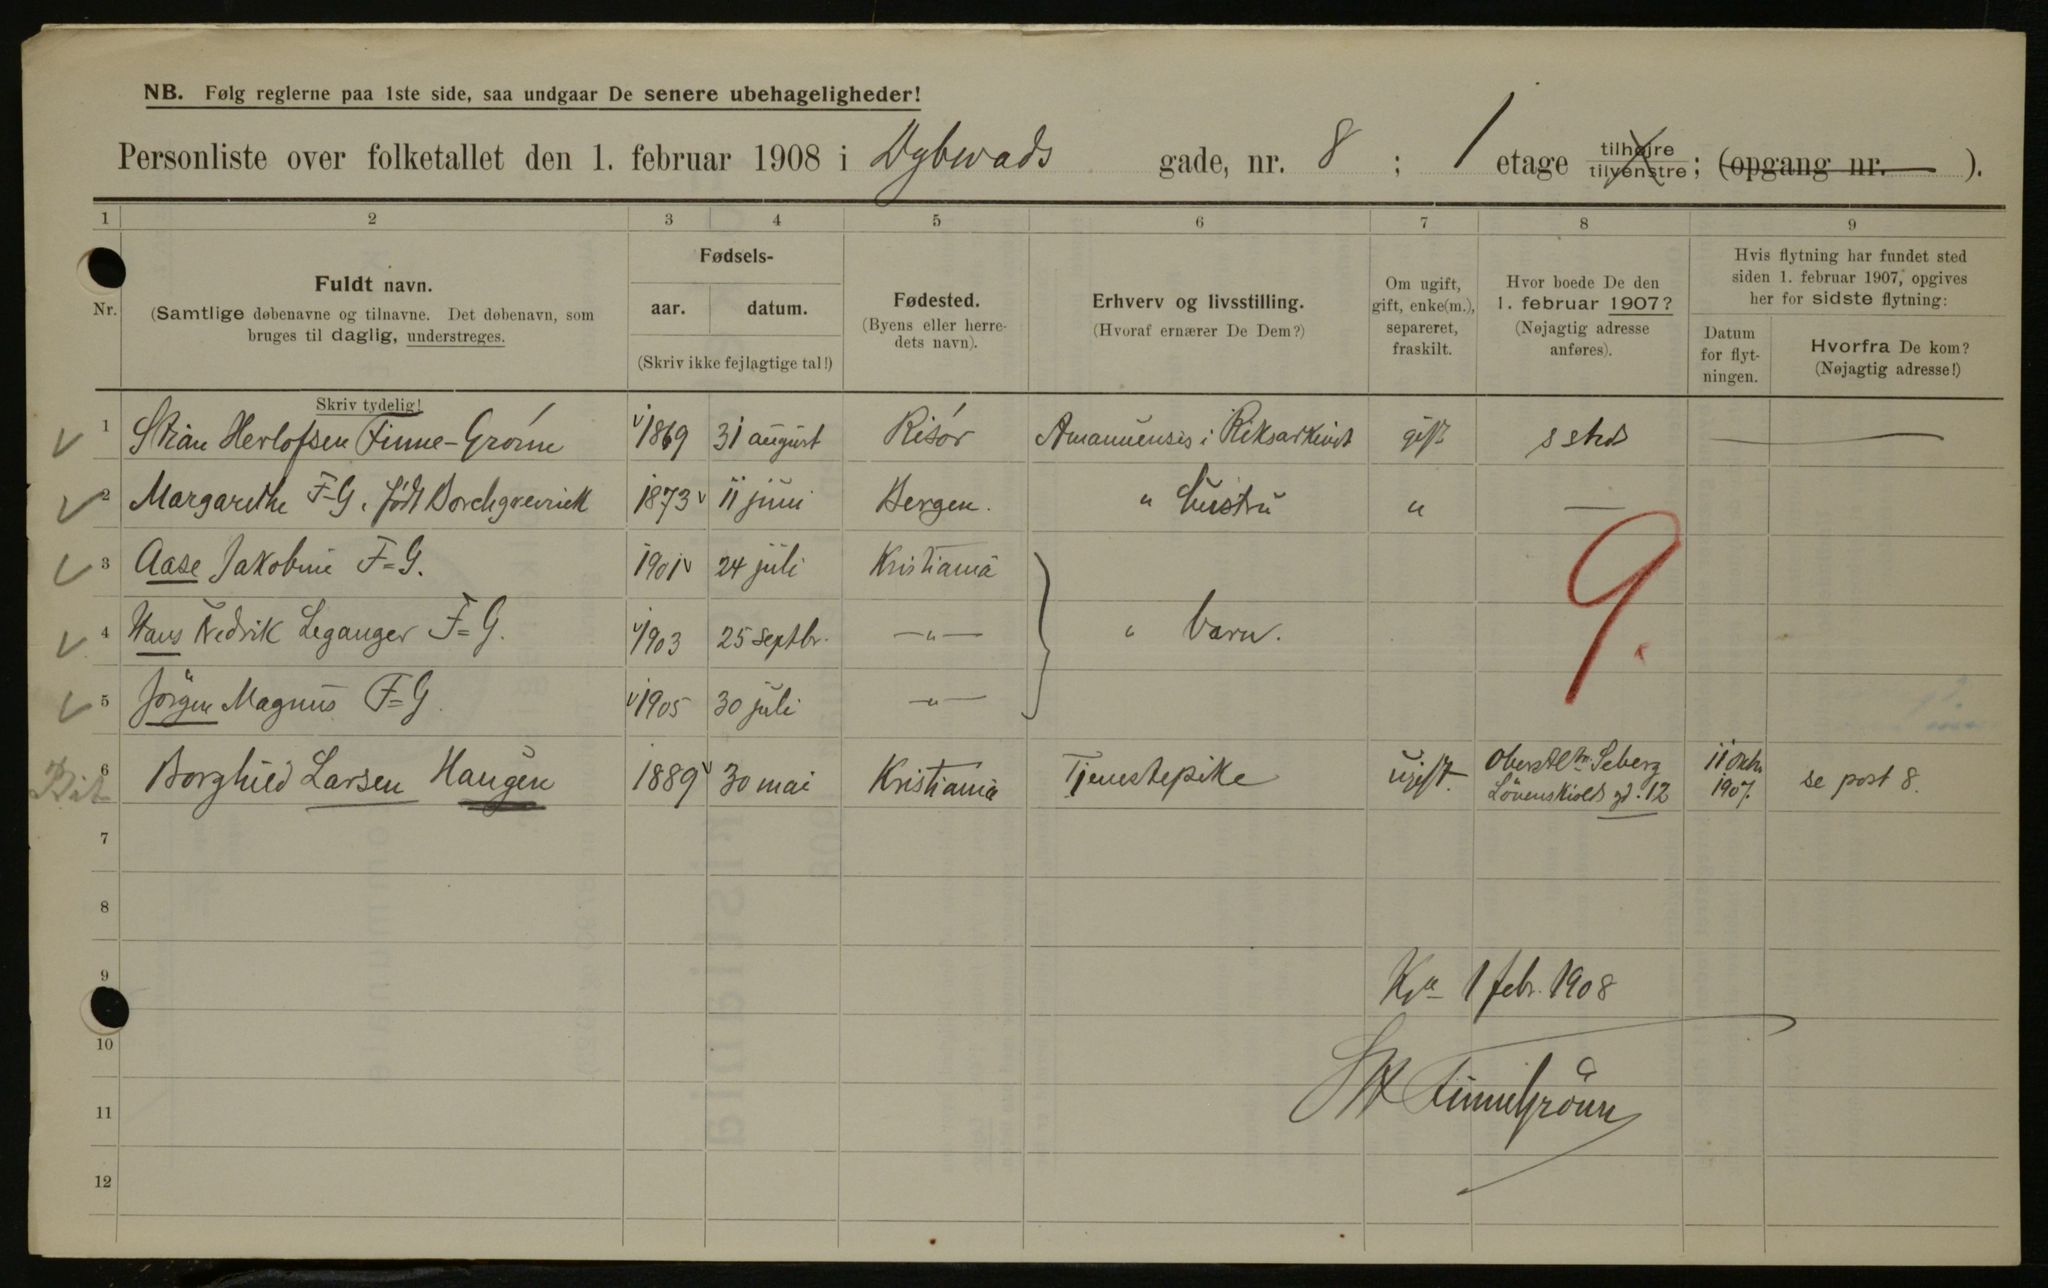 NB. Følg reglerne paa 1ste side, saa undgaar De senere ubehageligheder!
Personliste over folketallet den 1. februar 1908 i Dybwads gade, nr. 8 ; 1 etage tilhøjre tilvenstre ; (opgang nr. ).
1 2 3 4 5 6 7 8 9
Nr.
Fuldt navn.
(Samtlige døbenavne og tilnavne. Det døbenavn, som
bruges til daglig, understreges.
Skriv tydelig!
Fødsels-
aar. datum.
(Skriv ikke fejlagtige tal!)
Fødested.
(Byens eller herre-
dets navn).
Erhverv og livsstilling.
(Hvoraf ernærer De Dem?)
Om ugift,
gift, enke(m.),
separeret,
fraskilt.
Hvor boede De den
1. februar 1907?
(Nøjagtig adresse
anføres).
Hvis flytning har fundet sted
siden 1. februar 1907, opgives
her for sidste flytning:
Datum
for flyt-
ningen.
Hvorfra De kom?
(Nøjagtig adresse!)
1 Stian Herlofsen Finne-Grönn 1869 31 august Risör Amanuensis i Riksarkivet gift s sted —
2 Margarethe F-G. født Borchgrevink 1873 11 juni Bergen. " hustru " —
3 Aase Jakobine F=G. 1901 24 juli Kristiania
4 Hans Fredrik Leganger F=G. 1903 25 septbr. —"— " barn.
5 Jörgen Magnus F=G. 1905 30 juli —"—
9.
Bit 6 Borghild Larsen Haugen 1889 30 mai Kristiania Tjenestepike ugift. Oberstltn Seberg Lövenskiolds gd. 12 11 Oktr 1907. se post 8.
7
8
9
Kra 1 febr. 1908
10
11
SH Finne Grönn
12